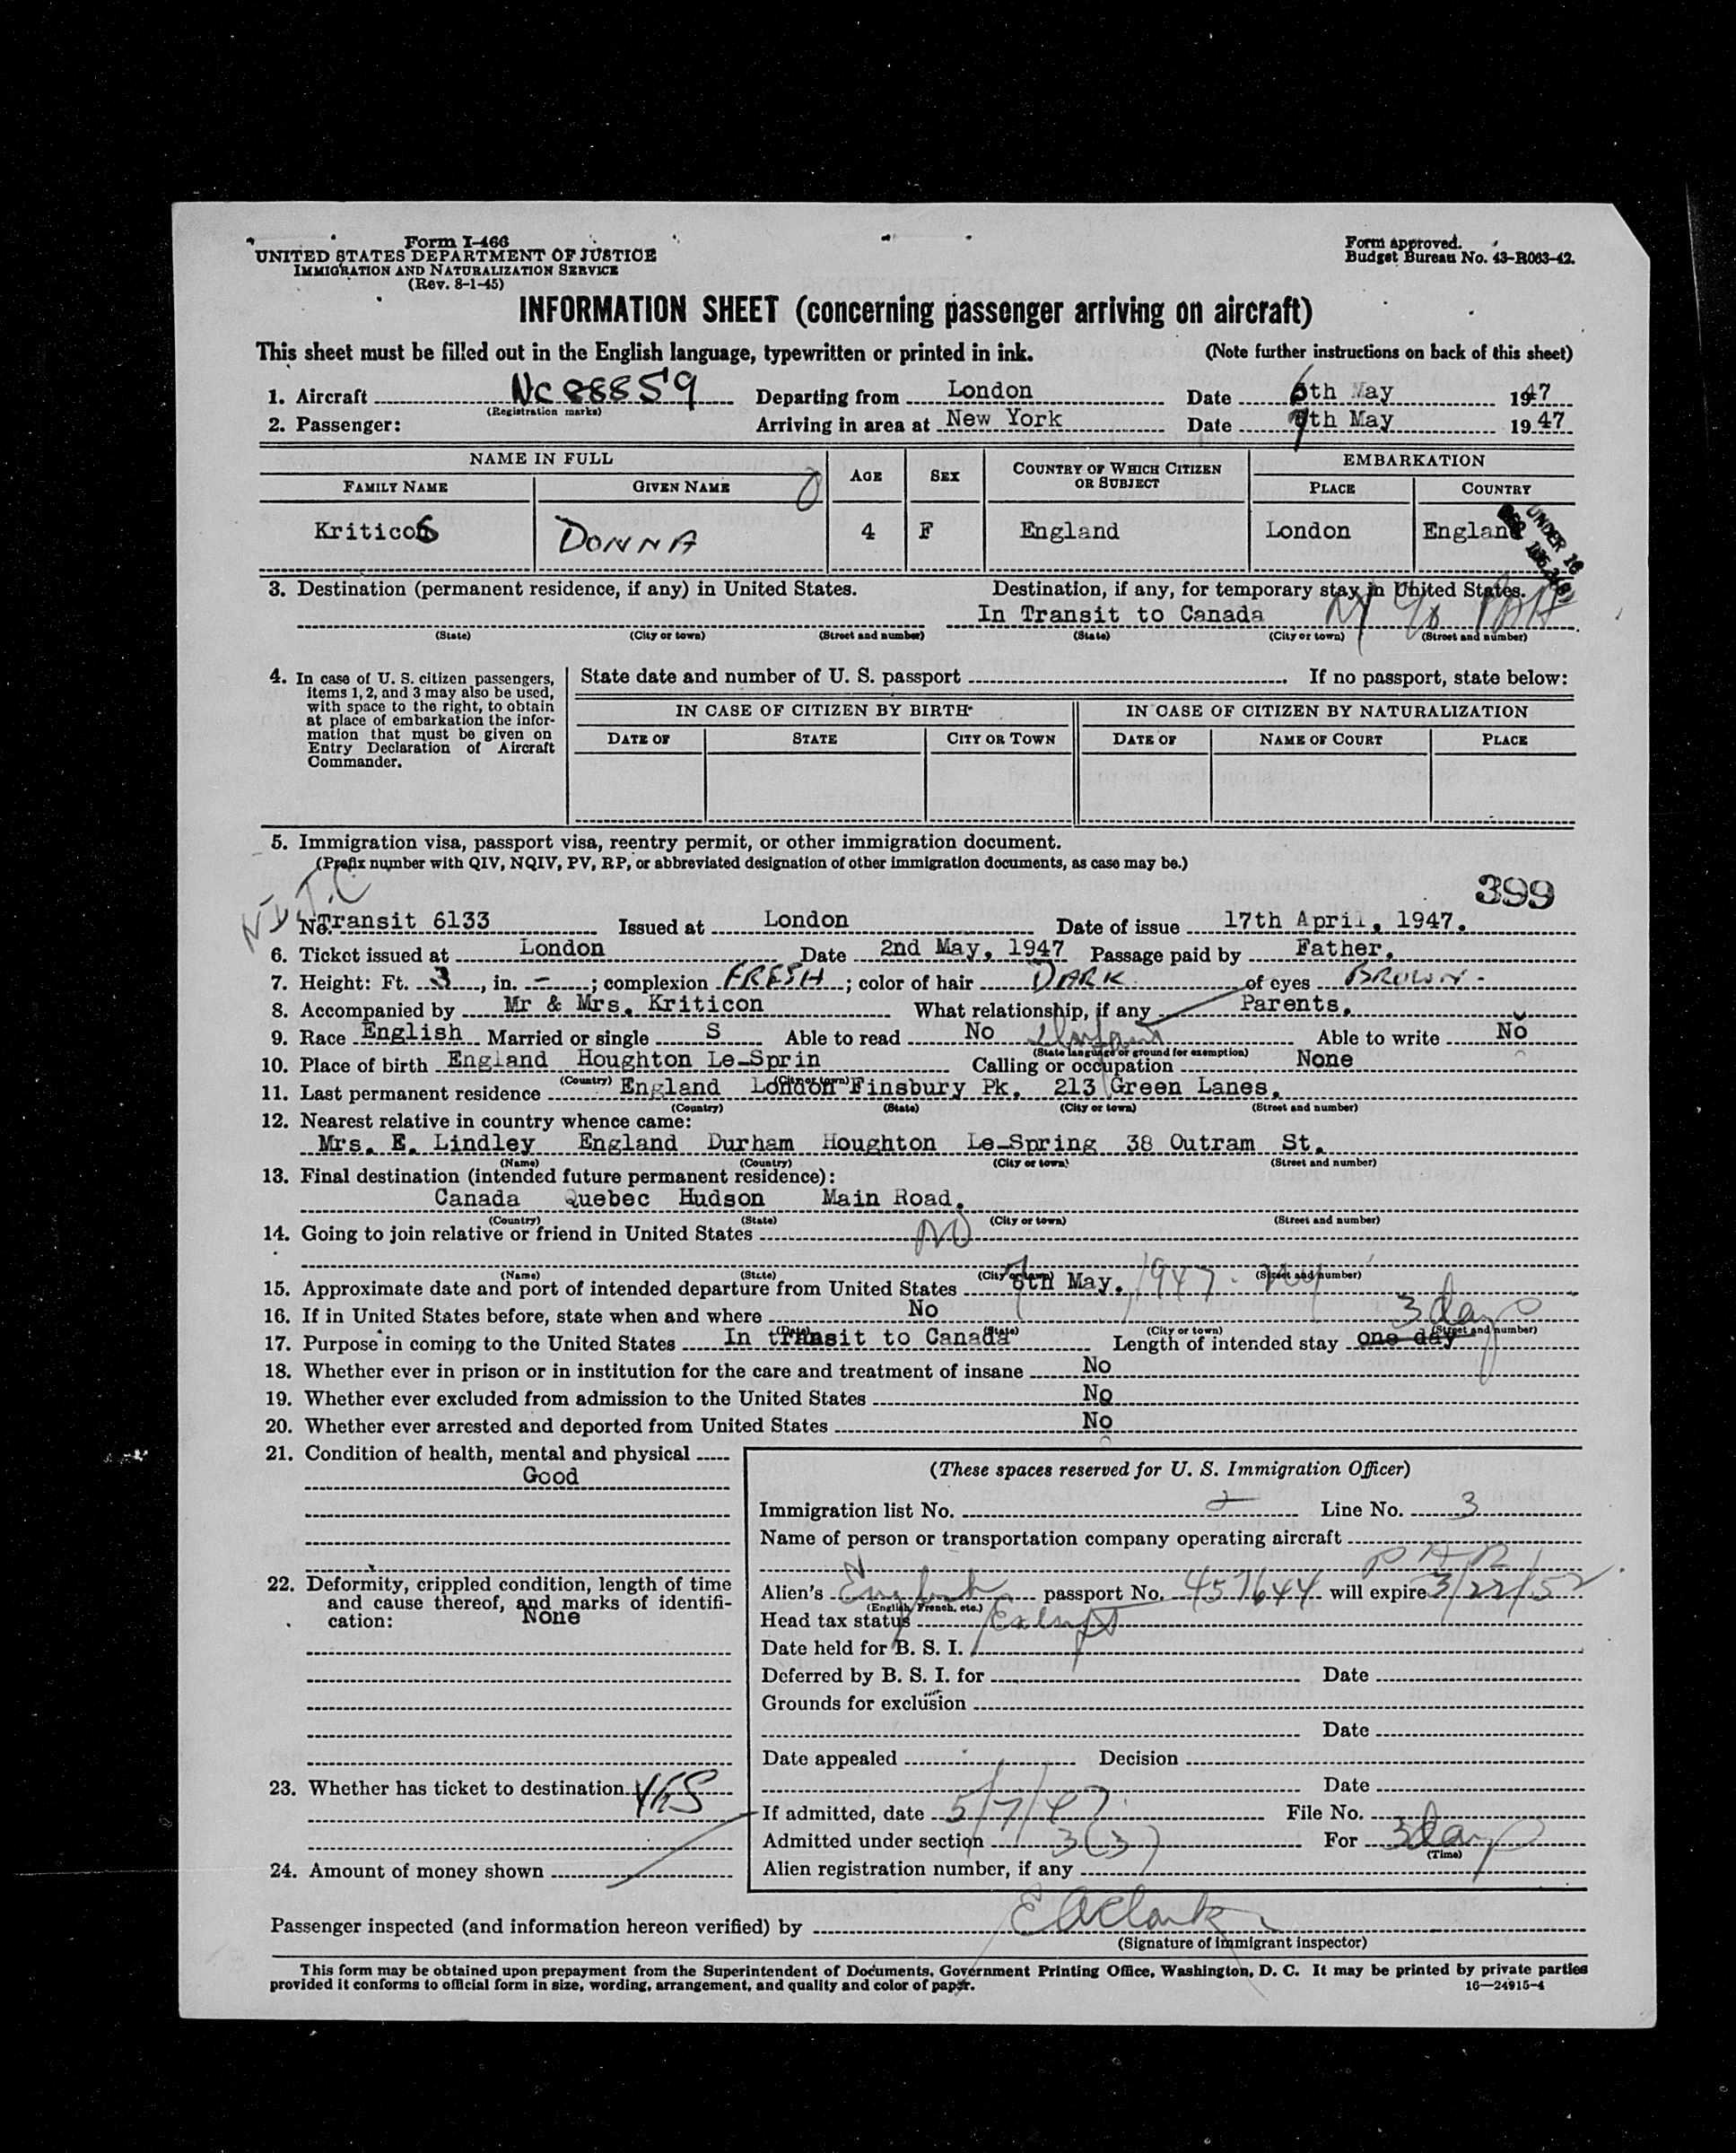 Form I-466
UNITED STATES DEPARTMENT OF JUSTICE
IMMIGRATION AND NATURALIZATION SERVICE
(Rev. 8-1-45)
Form approved.
Budget Bureau No. 43-R063-42.
INFORMATION SHEET (concerning passenger arriving on aircraft)
This sheet must be filled out in the English language, typewritten or printed in ink. (Note further instructions on back of this sheet)
1. Aircraft NC88859 Departing from London Date 6th May 1947
(Registration marks)
2. Passenger: Arriving in area at New York Date 7th May 1947
NAME IN FULL AGE SEX COUNTRY OF WHICH CITIZEN OR SUBJECT EMBARKATION
FAMILY NAME GIVEN NAME PLACE COUNTRY
Kriticos DONNA 4 F England London England
UNDER 16
3. Destination (permanent residence, if any) in United States. Destination, if any, for temporary stay in United States.
In Transit to Canada NY
(State) (City or town) (Street and number) (State) (City or town) (Street and number)
4. In case of U. S. citizen passengers, items 1, 2, and 3 may also be used, with space to the right, to obtain at place of embarkation the information that must be given on Entry Declaration of Aircraft Commander.
State date and number of U. S. passport If no passport, state below:
IN CASE OF CITIZEN BY BIRTH IN CASE OF CITIZEN BY NATURALIZATION
DATE OF STATE CITY OR TOWN DATE OF NAME OF COURT PLACE
5. Immigration visa, passport visa, reentry permit, or other immigration document.
(Prefix number with QIV, NQIV, PV, RP, or abbreviated designation of other immigration documents, as case may be.)
399
No. Transit 6133 Issued at London Date of issue 17th April, 1947.
6. Ticket issued at London Date 2nd May, 1947 Passage paid by Father,
7. Height: Ft. 3, in. -; complexion FRESH; color of hair DARK of eyes BROWN-
8. Accompanied by Mr & Mrs. Kriticon What relationship, if any Parents.
9. Race English Married or single S Able to read No Able to write No
(State language or ground for exemption)
10. Place of birth England Houghton Le-Sprin Calling or occupation None
(Country) (City or town)
11. Last permanent residence England London Finsbury Pk. 213 Green Lanes.
(Country) (State) (City or town) (Street and number)
12. Nearest relative in country whence came:
Mrs. E. Lindley England Durham Houghton Le-Spring 38 Outram St.
(Name) (Country) (City or town) (Street and number)
13. Final destination (intended future permanent residence):
Canada Quebec Hudson Main Road.
(Country) (State) (City or town) (Street and number)
14. Going to join relative or friend in United States NO
(Name) (State) (City or town) (Street and number)
15. Approximate date and port of intended departure from United States 8th May. 1947. NY
16. If in United States before, state when and where No
(Date) (State) (City or town) (Street and number)
17. Purpose in coming to the United States In transit to Canada Length of intended stay one day 3 days
18. Whether ever in prison or in institution for the care and treatment of insane No
19. Whether ever excluded from admission to the United States No
20. Whether ever arrested and deported from United States No
21. Condition of health, mental and physical
Good
22. Deformity, crippled condition, length of time and cause thereof, and marks of identification: None
23. Whether has ticket to destination YES
24. Amount of money shown
(These spaces reserved for U. S. Immigration Officer)
Immigration list No. 2 Line No. 3
Name of person or transportation company operating aircraft
PAA
Alien's English passport No. 457644 will expire 3/22/52.
(English, French, etc.)
Head tax status Exempt
Date held for B. S. I.
Deferred by B. S. I. for Date
Grounds for exclusion
Date
Date appealed Decision
Date
If admitted, date 5/7/47. File No.
Admitted under section 3(3) For 3 days
(Time)
Alien registration number, if any
Passenger inspected (and information hereon verified) by E A Clark
(Signature of immigrant inspector)
This form may be obtained upon prepayment from the Superintendent of Documents, Government Printing Office, Washington, D. C. It may be printed by private parties
provided it conforms to official form in size, wording, arrangement, and quality and color of paper. 16—24915-4